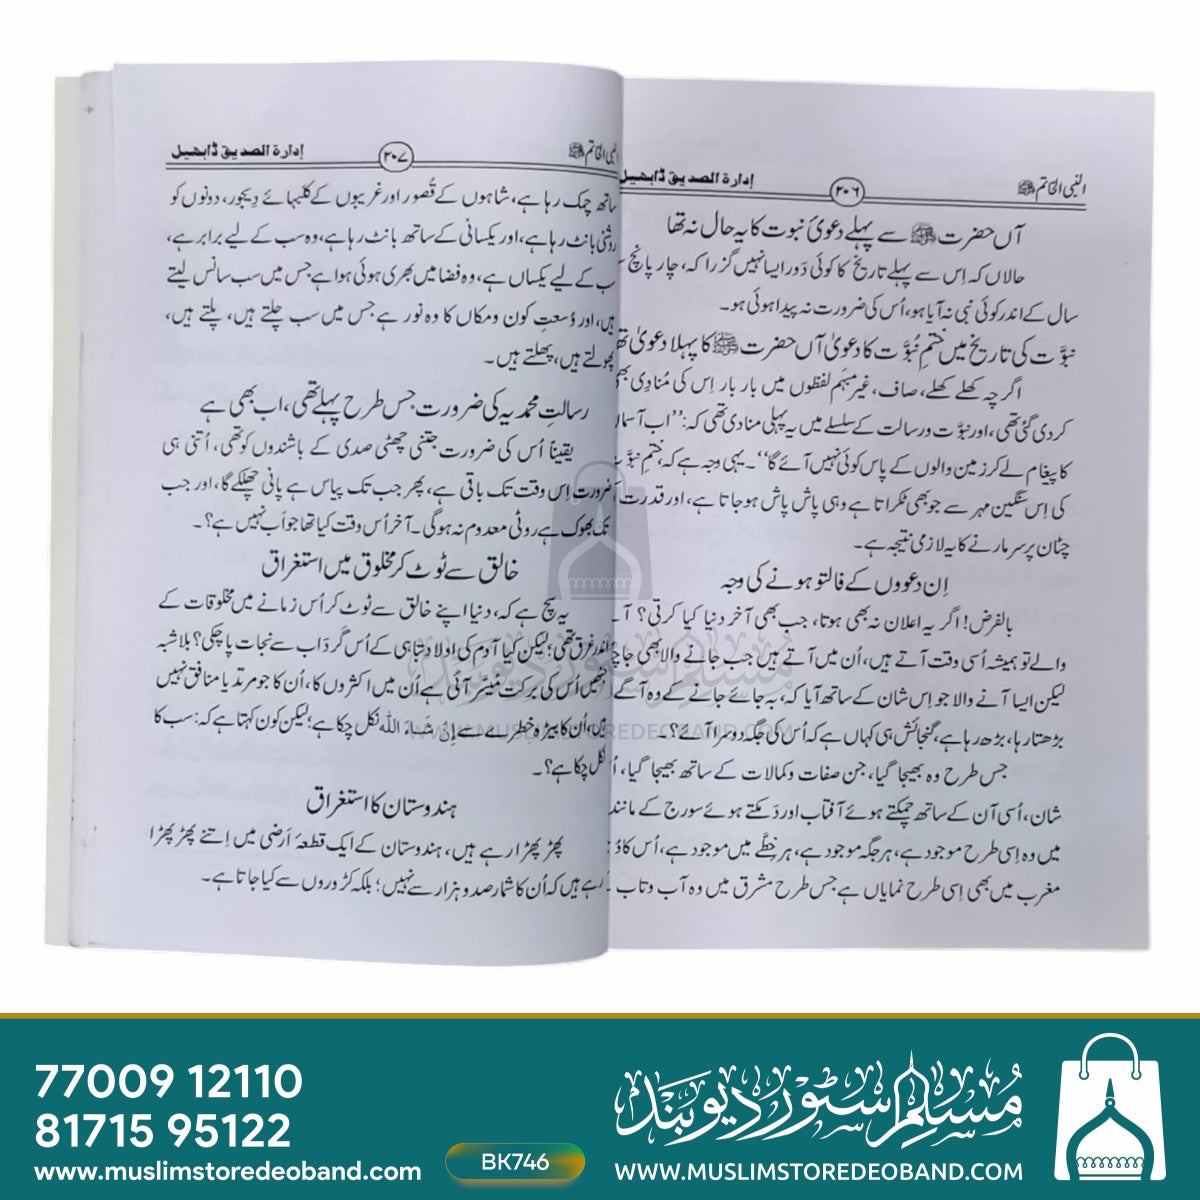 النبی الخاتم ﷺ ۲۰۶ ادارۃ الصدیق ڈابھیل
آں حضرت ﷺ سے پہلے دعویٔ نبوت کا یہ حال نہ تھا
حالاں کہ اِس سے پہلے تاریخ کا کوئی دَور ایسا نہیں گزرا کہ، چار پانچ
سال کے اندر کوئی نبی نہ آیا ہو، اُس کی ضرورت نہ پیدا ہوئی ہو۔
نبوَّت کی تاریخ میں ختمِ نُبوَّت کا دعویٰ آں حضرت ﷺ کا پہلا دعویٰ
اگرچہ کھلے کھلے، صاف، غیر مبہَم لفظوں میں بار بار اِس کی مُنادِی
کردی گئی تھی، اور نبوَّت ورسالت کے سلسلے میں یہ پہلی منادی تھی کہ: ’’اب
کا پیغام لے کر زمین والوں کے پاس کوئی نہیں آئے گا‘‘۔ یہی وجہ ہے کہ، ختمِ
کی اِس سنگین مہر سے جو بھی ٹکراتا ہے وہی پاش پاش ہوجاتا ہے، اور قدرت
چٹان پر سر مارنے کا یہ لازمی نتیجہ ہے۔
اِن دعووں کے فالتو ہونے کی وجہ
بالفرض! اگر یہ اعلان نہ بھی ہوتا، جب بھی آخر دنیا کیا کرتی؟
والے تو ہمیشہ اُسی وقت آتے ہیں، اُن میں آتے ہیں جب جانے والا بھی
لیکن ایسا آنے والا جو اِس شان کے ساتھ آیا کہ، بہ جائے جانے کے وہ آگے
بڑھتا رہا، بڑھ رہا ہے، گنجائش ہی کہاں ہے کہ اُس کی جگہ دوسرا آئے؟۔
جس طرح وہ بھیجا گیا، جن صفات وکمالات کے ساتھ بھیجا گیا،
شان، اُسی آن کے ساتھ چمکتے ہوئے آفتاب اور دَمکتے ہوئے سورج کے مانند
میں وہ اِسی طرح موجود ہے، ہر جگہ موجود ہے، ہر خطّے میں موجود ہے، اُس کا
مغرب میں بھی اِسی طرح نمایاں ہے جس طرح مشرق میں وہ آب وتاب
النبی الخاتم ﷺ ۲۰۷ ادارۃ الصدیق ڈابھیل
ساتھ چمک رہا ہے، شاہوں کے قُصور اور غریبوں کے کلبہائے دِیجور، دونوں کو
روشنی بانٹ رہا ہے، اور یکسانی کے ساتھ بانٹ رہا ہے، وہ سب کے لیے برابر ہے،
سب کے لیے یکساں ہے، وہ فضا میں بھری ہوئی ہوا ہے جس میں سب سانس لیتے
ہیں، اور وُسعتِ کون ومکاں کا وہ نور ہے جس میں سب چلتے ہیں، پلتے ہیں،
پھولتے ہیں، پھلتے ہیں۔
رسالتِ محمدیہ کی ضرورت جس طرح پہلے تھی، اب بھی ہے
یقیناً اُس کی ضرورت جتنی چھٹی صدی کے باشندوں کو تھی، اُتنی ہی
ضرورت اِس وقت تک باقی ہے، پھر جب تک پیاس ہے پانی چھلکے گا، اور جب
تک بھوک ہے روٹی معدوم نہ ہوگی۔ آخر اُس وقت کیا تھا جو اَب نہیں ہے؟۔
خالق سے ٹوٹ کر مخلوق میں استغراق
یہ سچ ہے کہ، دنیا اپنے خالق سے ٹوٹ کر اُس زمانے میں مخلوقات کے
اندر غرق تھی؛ لیکن کیا آدم کی اولاد تباہی کے اُس گرداب سے نجات پاچکی؟ بلاشبہ
جنھیں اُس کی برکت مُیَسَّر آئی ہے اُن میں اکثروں کا، اُن کا جو مرتد یا منافق نہیں
ہیں، اُن کا بیڑہ خطرے سے إن شاء اللہ نکل چکا ہے؛ لیکن کون کہتا ہے کہ: سب کا
نکل چکا ہے؟۔
ہندوستان کا استغراق
پھڑ پھڑا رہے ہیں، ہندوستان کے ایک قطعۂ اَرضی میں اِتنے پھڑ پھڑا
رہے ہیں کہ اُن کا شمار صد وہزار سے نہیں؛ بلکہ کڑوروں سے کیا جاتا ہے۔
مسلم سٹور دیوبند
WWW.MUSLIMSTOREDEOBAND.COM
77009 12110
81715 95122
www.muslimstoredeoband.com
BK746
مسلم سٹور دیوبند
WWW.MUSLIMSTOREDEOBAND.COM